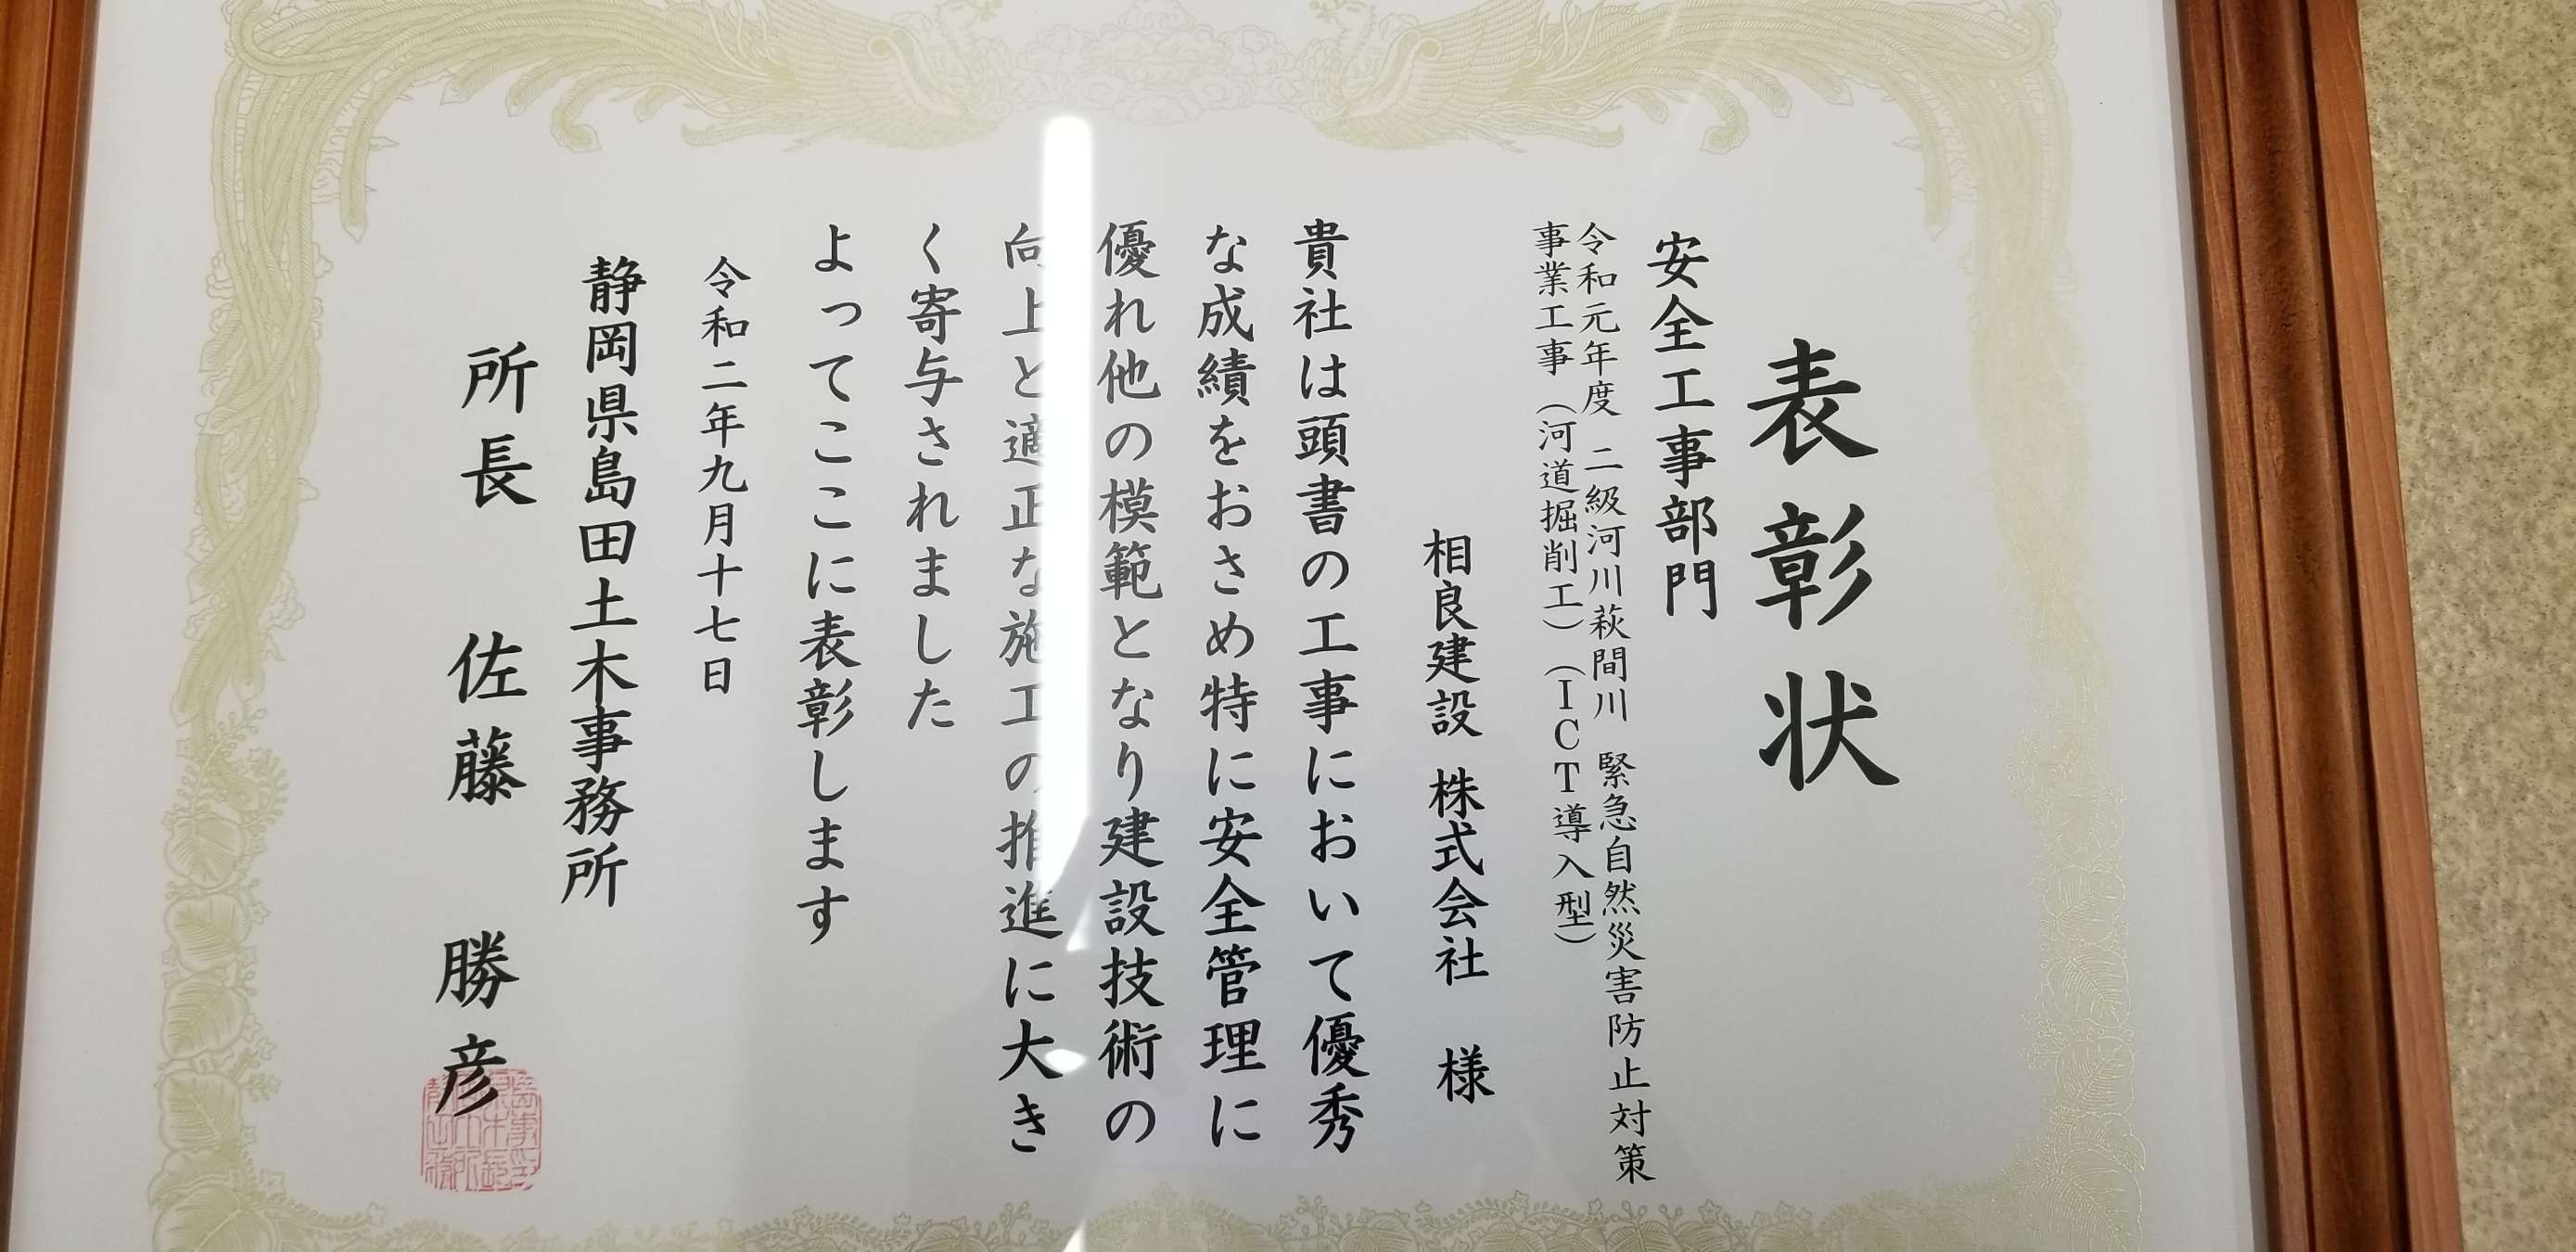 表彰状
安全工事部門
令和元年度 二級河川萩間川 緊急自然災害防止対策
事業工事（河道掘削工）（ICT導入型）
相良建設 株式会社 様
貴社は頭書の工事において優秀
な成績をおさめ特に安全管理に
優れ他の模範となり建設技術の
向上と適正な施工の推進に大き
く寄与されました
よってここに表彰します
令和二年九月十七日
静岡県島田土木事務所
所長 佐藤 勝彦